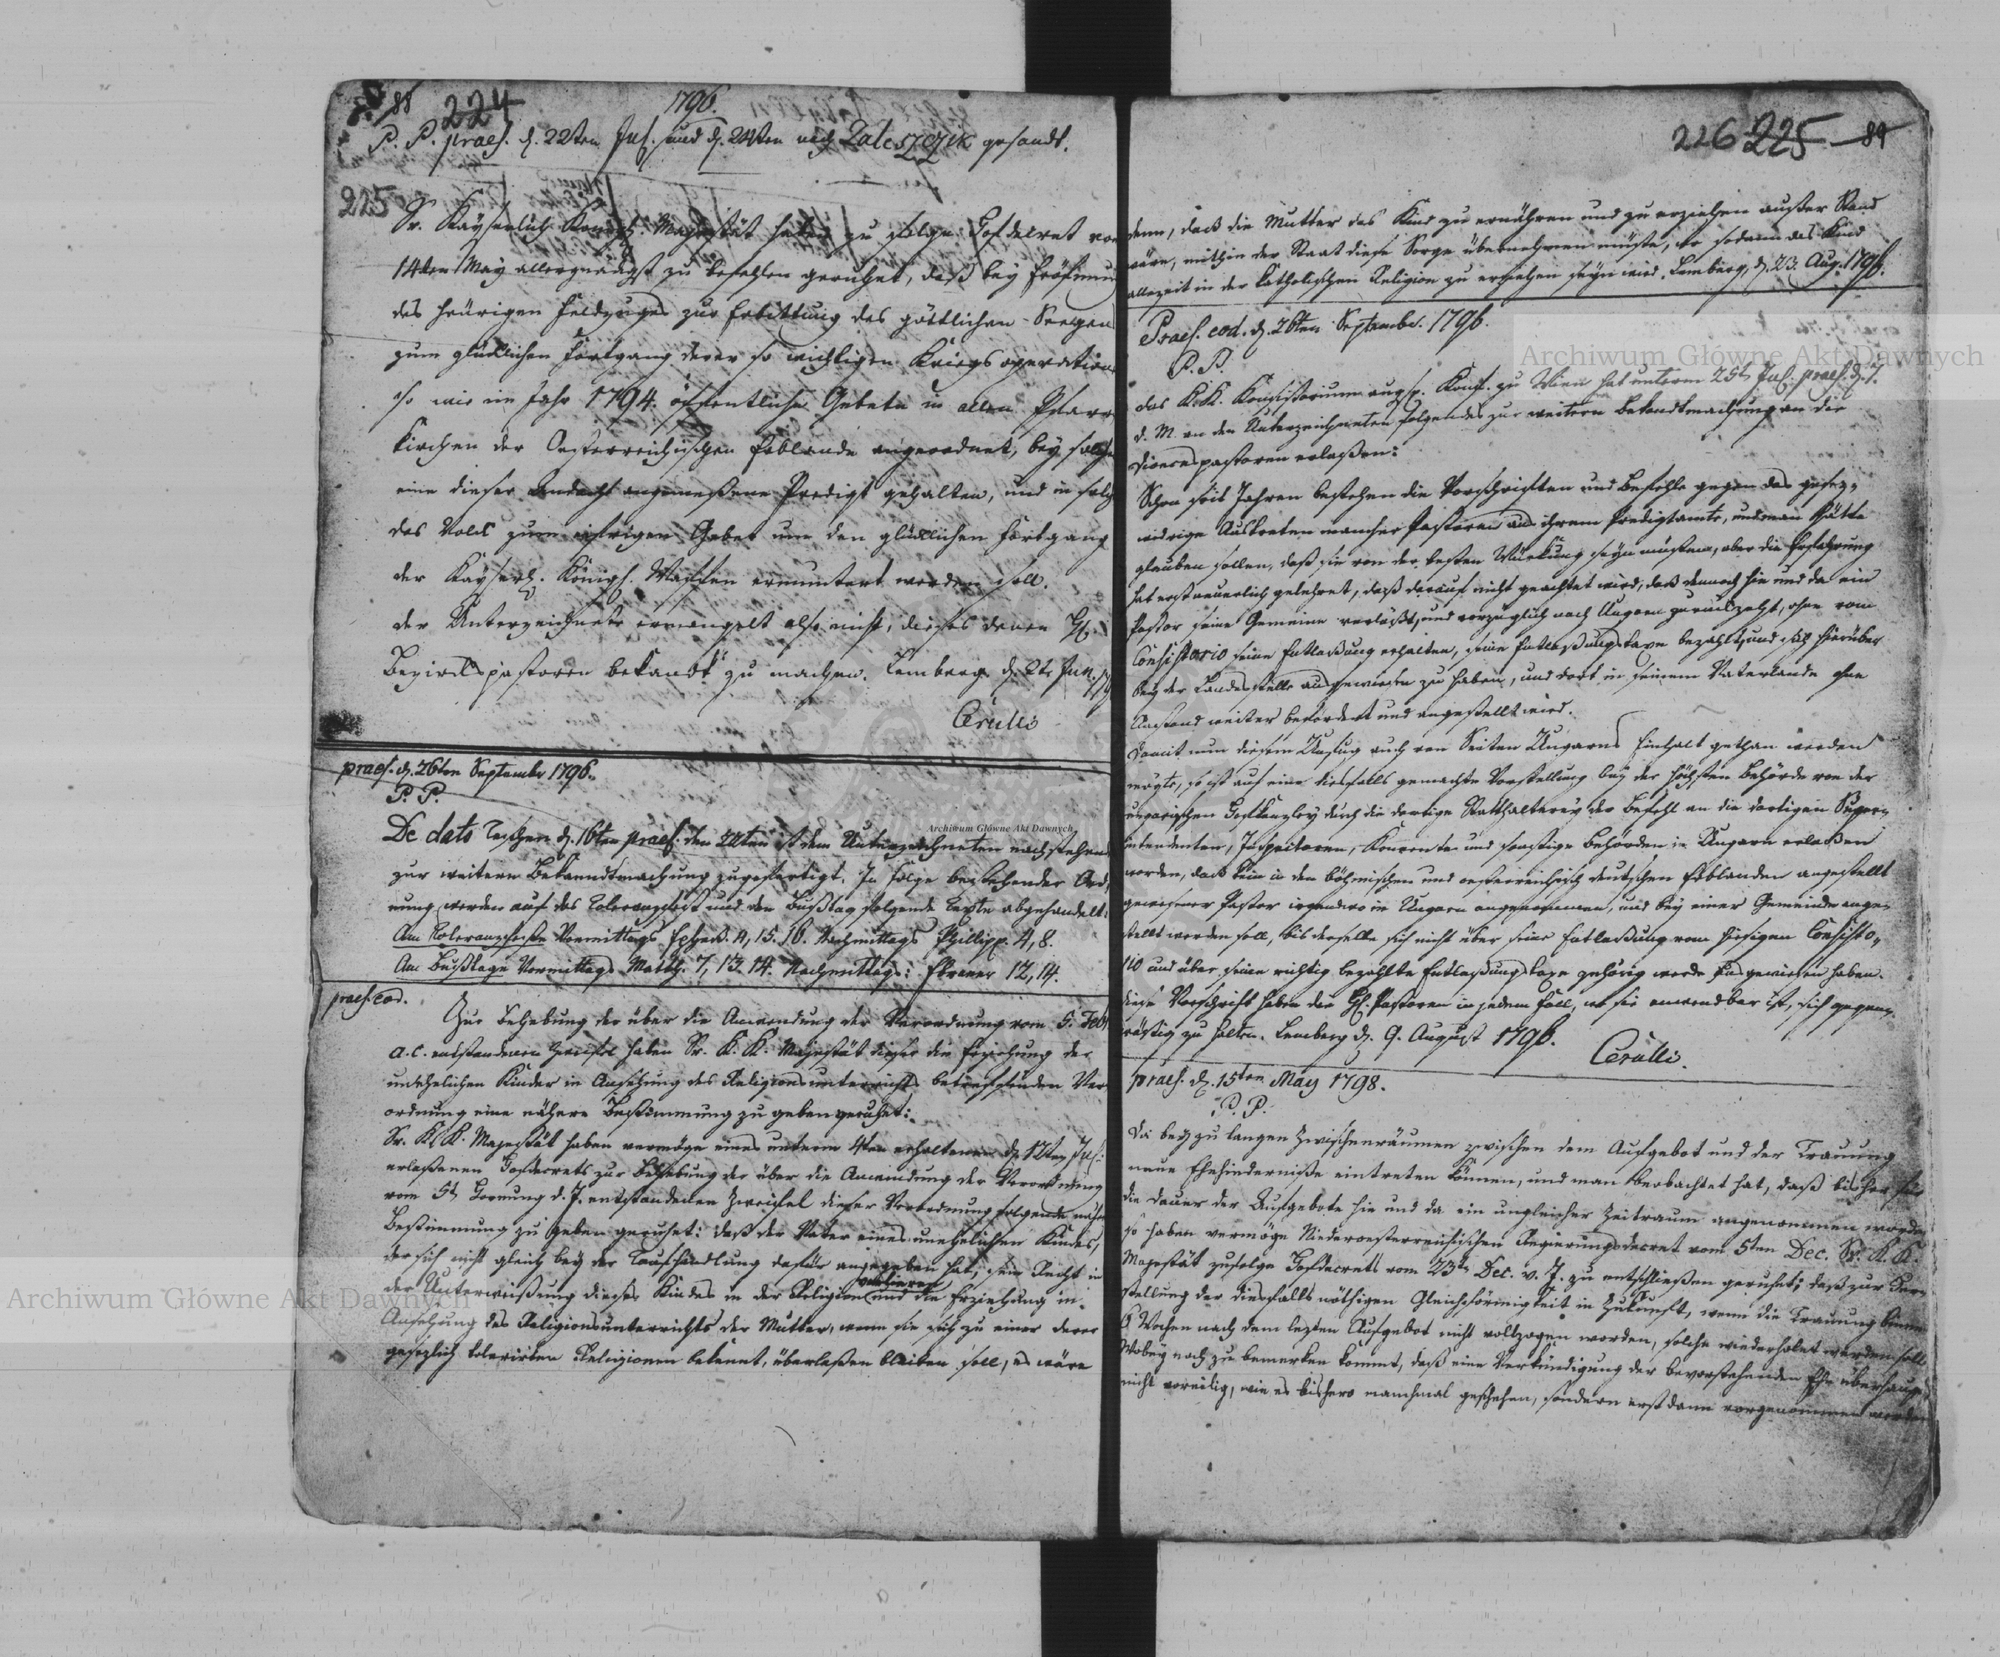 88 224
1796.
P. P. praes. d. 22ten Jul. und d. 24ten nach Zaleszczik gesandt.
225
Sr. Kayserlich Königl. Majestät haben zu folge Hofdecret vom
14ten May allergnädigst zu befehlen geruhet, daß bey Eröfnung
des heurigen Feldzuges zur Erbittung des göttlichen Seegens
zum glücklichen Fortgang derer so wichtigen Kriegsoperationen
so wie im Jahr 1794. öffentliche Gebete in allen Pfarr
Kirchen der Oesterreichischen Erblande angeordnet, bey solchen
eine dieser Andacht angemeßene Predigt gehalten, und in solcher
das Volk zum eifrigen Gebet um den glücklichen Fortgang
der Kayserl. Königl. Waffen ermuntert werden soll.
Der Unterzeichnete ermangelt also nicht, dieses denen HH.
Bezirkspastoren bekandt zu machen. Lemberg d. 2t. Jun.
Cerulli
praes. d. 26ten September 1796.
P. P.
De dato Teschen d. 16ten praes. den 22ten ist dem Unterzeichneten nachstehendes
zur weitern Bekanndtmachung zugefertigt. In Folge bestehender Ord,
nung werden auf das Toleranzfest und den Bußtag folgende Texte abgehandelt:
Am Toleranzfeste Vormittags Ephes. 4, 15. 16. Nachmittags Phillipp. 4, 8.
Am Bußtage Vormittags Matth. 7, 13. 14. Nachmittags: Ebraeer 12, 14.
praes. eod.
Zur Behebung der über die Anwendung der Verordnung vom 5. Feb.
a. c. entstandenen Zweifel haben Sr. K. K. Majestät dieser die Erziehung der
unehelichen Kinder in Ansehung des Religionsunterrichts betreffenden Ver
ordnung eine nähere Bestimmung zu geben geruhet:
Sr. K. K. Majestät haben vermöge eines unterm 4ten erhaltenen d. 12ten Jul.
erlaßenen Hofdecrets zur Behebung der über die Anwendung der Verordnung
vom 5t. Hornung d. J. entstandenen Zweifel dieser Verordnung folgende nähere
Bestimmung zu geben geruhet: daß der Vater eines unehelichen Kindes,
der sich nicht gleich bey der Taufhandlung dafür angegeben hat, sein Recht in
verlieren
der Unterweißung dieses Kindes in der Religion und die Erziehung in
Ansehung des Religionsunterrichts der Mutter, wenn sie sich zu einer derer
gesezlich tolerirten Religionen bekennt, überlaßen bleiben soll, es wäre
226 225 89
denn, daß die Mutter das Kind zu ernähren und zu erziehen außer Stand
wäre, mithin der Staat diese Sorge übernehmen müßte, wo sodann das Kind
allezeit in der katholischen Religion zu erziehen seyn wird. Lemberg, d. 23. Aug. 1796.
Praes. eod. d. 26ten September. 1796.
P. P.
Das K. K. Konsistorium augsp. Konf. zu Wien hat unterm 25t. Jul. praes. d. 7.
d. M. an den Unterzeichneten folgendes zur weitern Bekandtmachung an die
Dioecespastoren erlaßen:
Schon seit Jahren bestehen die Vorschriften und Befehle gegen das gesez,
widrige Austreten mancher Pastoren aus ihrem Predigtamte, und man hätte
glauben sollen, daß sie von der besten Würkung seyn müßten, aber die Erfahrung
hat erst neuerlich gelehret, daß darauf nicht geachtet wird, daß dennoch hie und da ein
Pastor seine Gemeine verläßt, und vorzüglich nach Ungarn zurückzieht, ohne vom
Consistorio seine Entlaßung erhalten, seine Entlaßungstaxe bezahlt, und sich hierüber
bey der Landesstelle ausgewiesen zu haben, und dort in seinem Vaterlande ohne
Anstand weiter befördert und angestellt wird.
Damit nun diesem Unfug auch von Seiten Ungarns Einhalt gethan werden
mögte, so ist auf eine diesfalls gemachte Vorstellung bey der höchsten Behörde von der
ungarischen Hofkanzley durch die dortige Statthalterey der Befehl an die dortigen Super,
intendenten, Inspectoren, Konvente und sonstige Behörden in Ungarn erlaßen
worden, daß kein in den böhmischen und oesterreichisch deutschen Erblanden angestellt
gewesener Pastor irgendwo in Ungarn angenommen, und bey einer Gemeinde ange,
stellt werden soll, bis derselbe sich nicht über seine Entlaßung vom hiesigen Consisto,
rio und über seine richtig bezahlte Entlaßungstaxe gehörig werde ausgewiesen haben.
Diese Vorschrift haben die HH. Pastoren in jedem Fall, wo sie anwendbar ist, sich gegen,
wärtig zu halten. Lemberg d. 9. August 1796.
Cerulli.
praes. d. 15ten May 1798.
P. P.
Da bey zu langen Zwischenräumen zwischen dem Aufgebot und der Trauung
neue Ehehinderniße eintreten können, und man beobachtet hat, daß bisher für
die Dauer der Aufgebote hie und da ein ungleicher Zeitraum angenommen worden,
so haben vermöge Niederoesterreichischen Regierungsdecret vom 5ten Dec. Sr. K. K.
Majestät zufolge Hofdecrets vom 23ten Dec. v. J. zu entschließen geruhet; daß zur Her,
stellung der diesfalls nöthigen Gleichförmigkeit in Zukunft, wenn die Trauung binnen
6 Wochen nach dem lezten Aufgebot nicht vollzogen worden, solche wiederholet werden soll
Wobey noch zu bemerken kommt, daß eine Verkündigung der bevorstehenden Ehe überhaupt
nicht voreilig, wie es bishero manchmal geschehen, sondern erst dann vorgenommen werden
Archiwum Główne Akt Dawnych
Archiwum Główne Akt Dawnych
Archiwum Główne Akt Dawnych